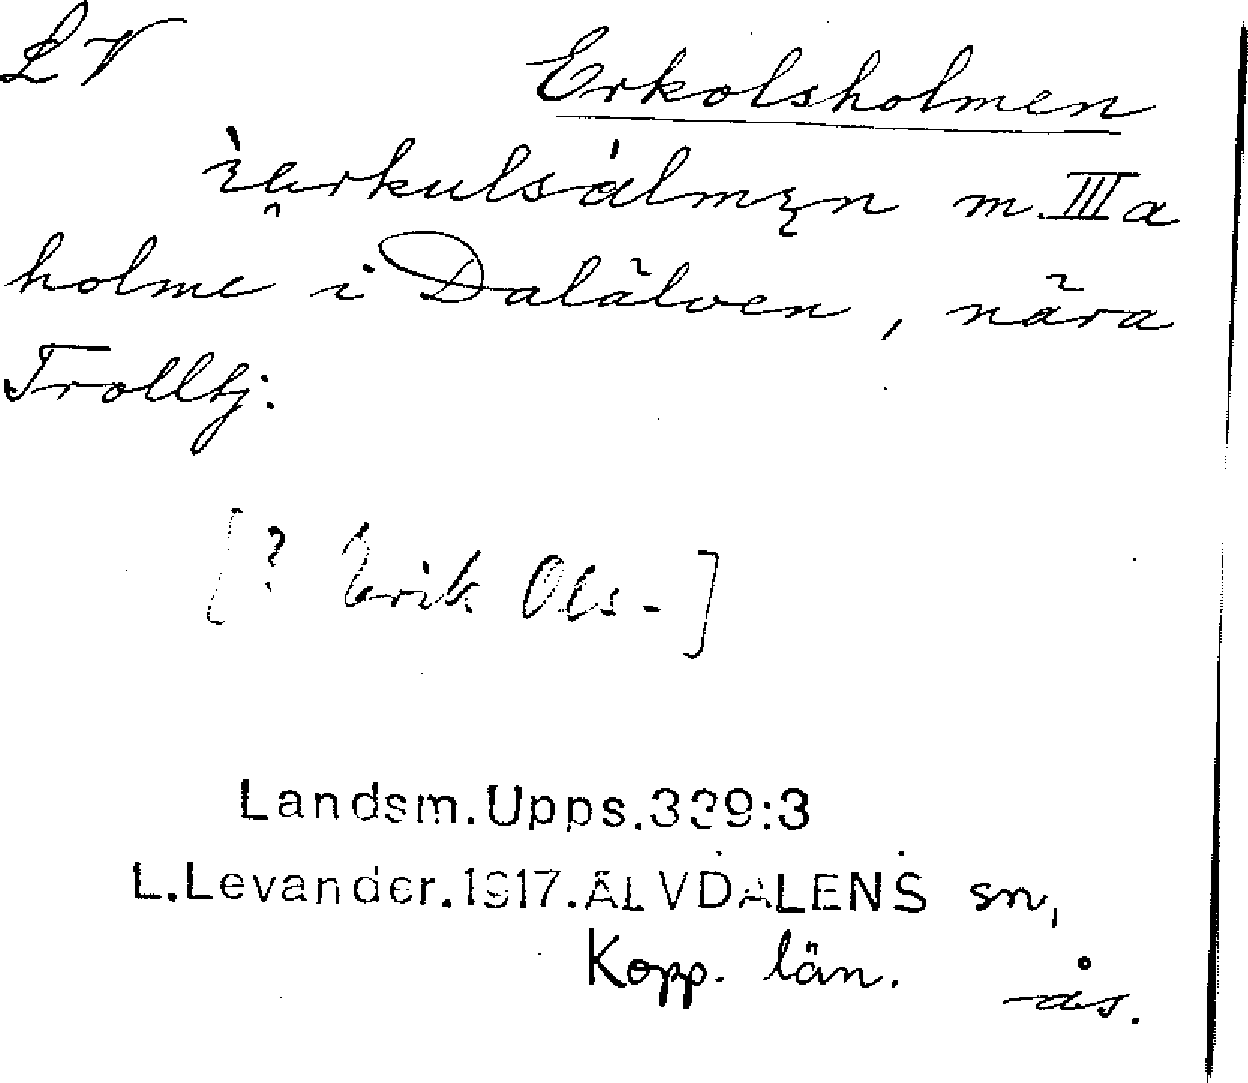 LV Erkolsholmen
ìe̯rkulsálmęn m. III a
holme i Dalälven, nära
Trolltj:
[? Erik Ols-]
Landsm.Upps.339:3
L.Levander.1917.ÄLVDALENS sn,
Kopp. län.
ås.